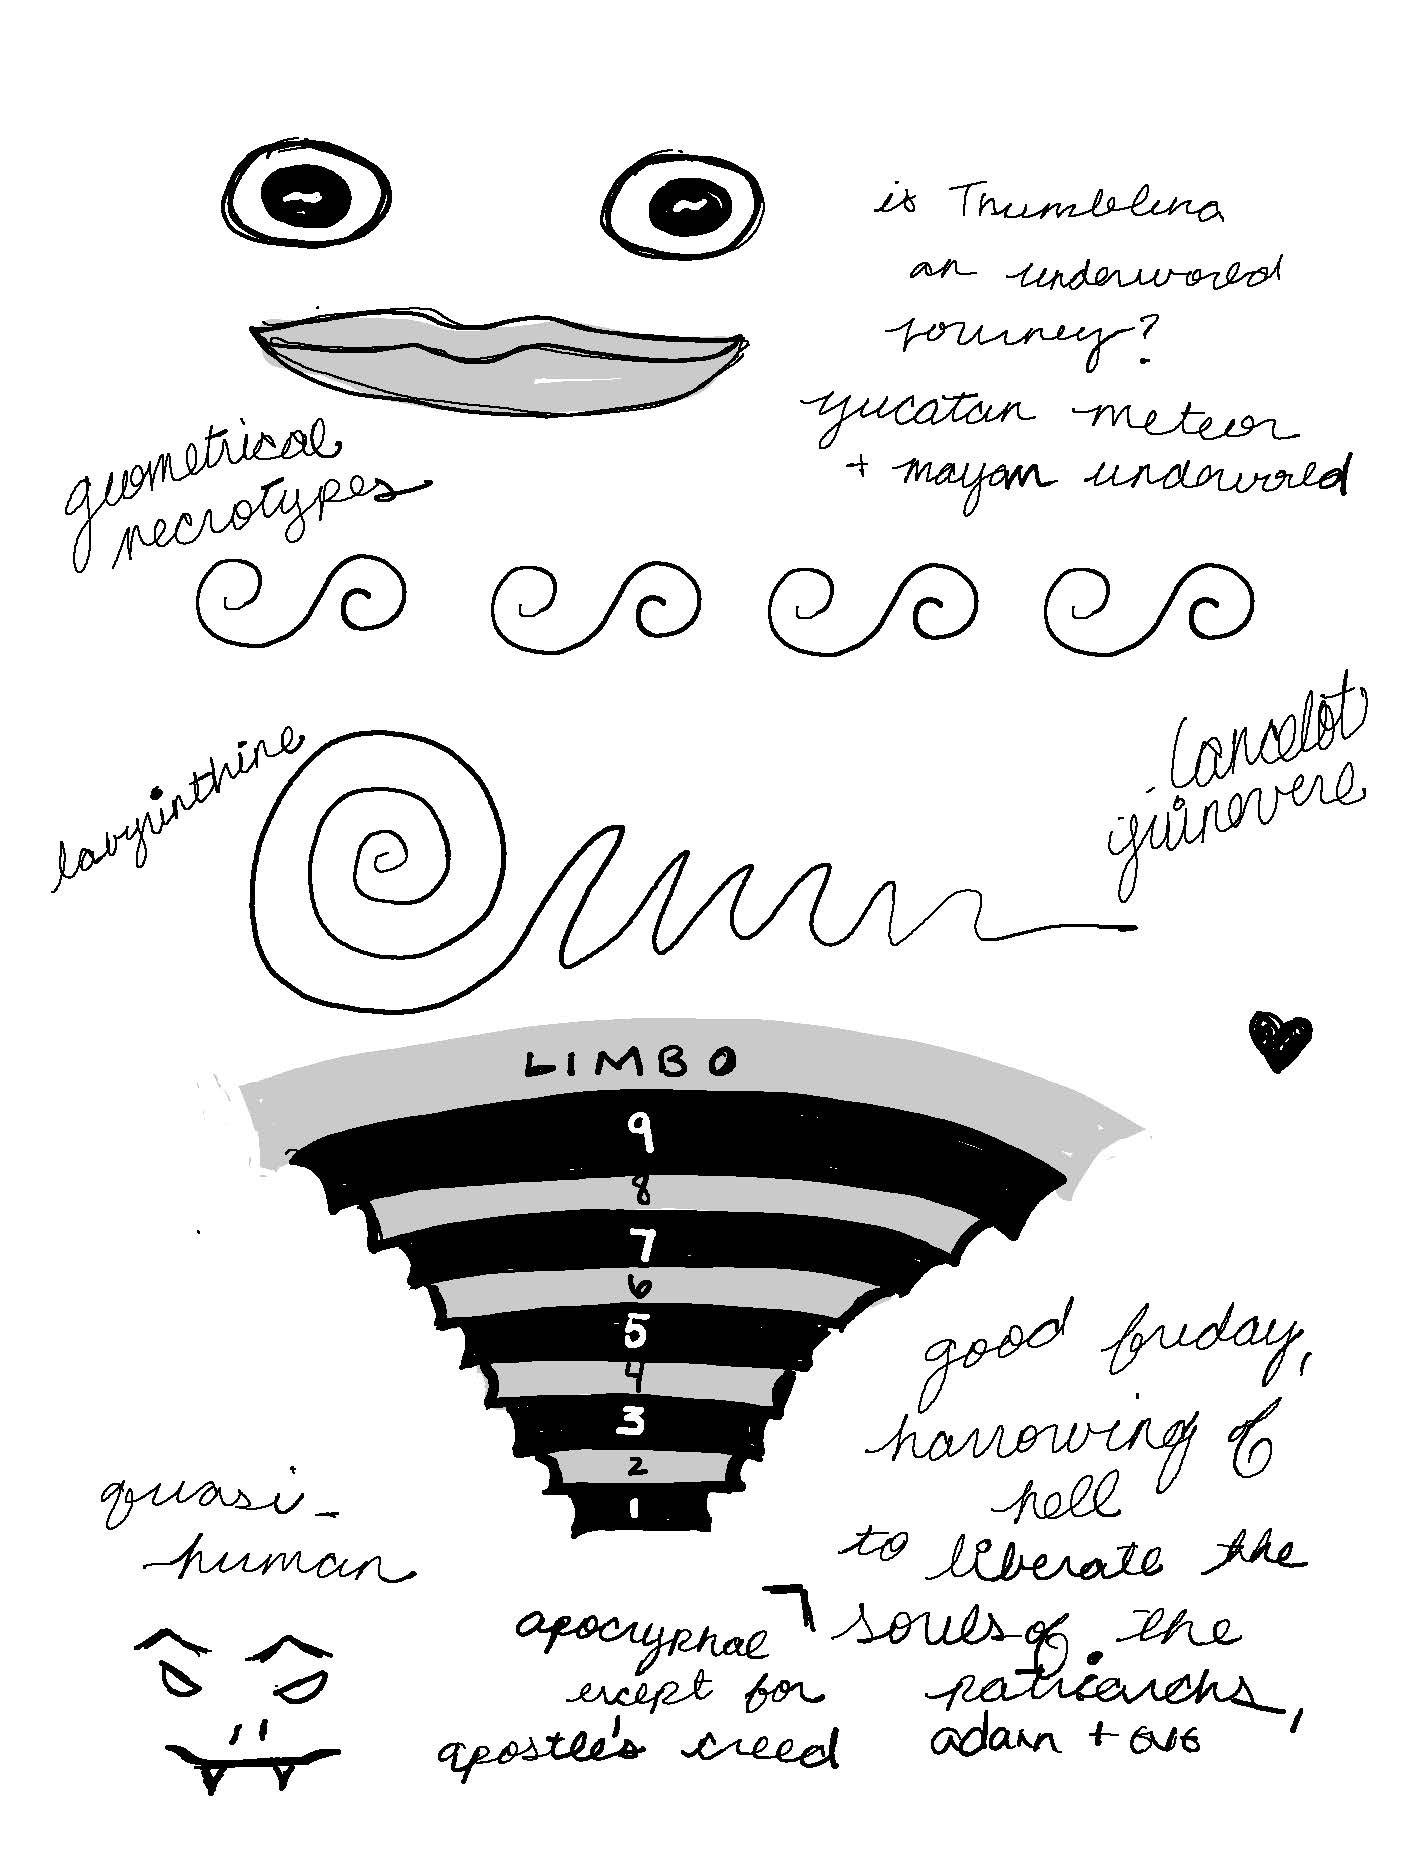 is Thumbelina
an underworld
journey?
yucatan meteor
+ mayan underworld
geometrical
necrotypes
labyrinthine
Lancelot
guinevere
LIMBO
9
8
7
6
5
4
3
2
1
good friday,
harrowing of
hell
to liberate the
souls of the
patriarchs,
adam + eve
quasi-
human
apocryphal
except for
apostle's creed